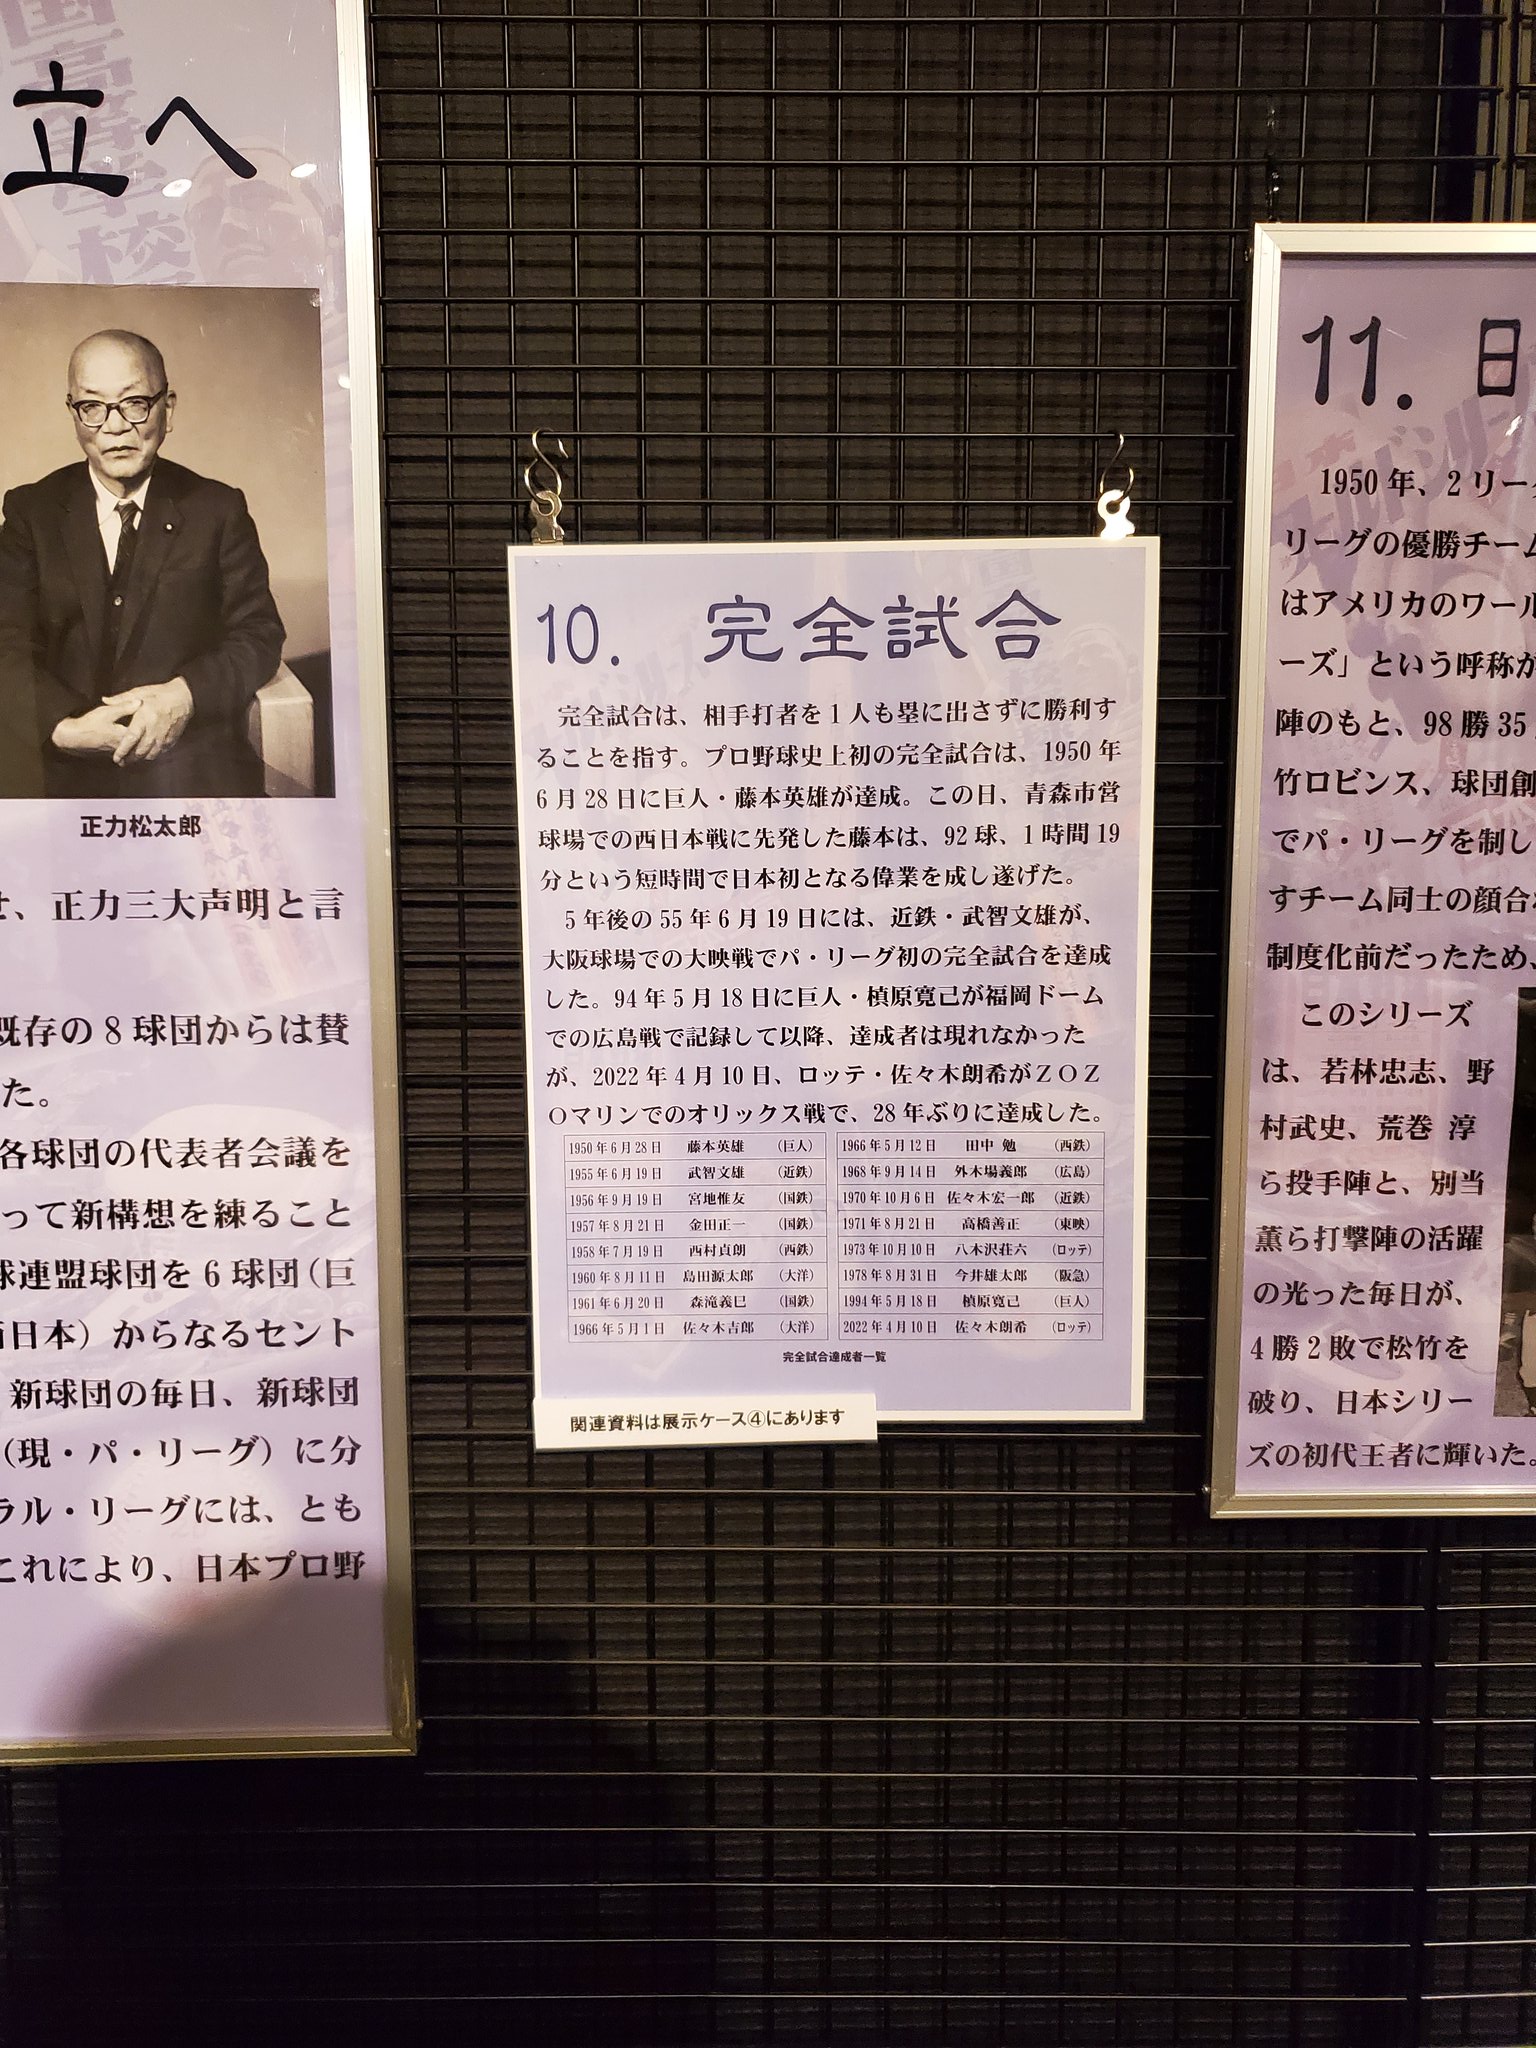 立へ
正力松太郎
せ、正力三大声明と言
既存の8球団からは賛
た。
各球団の代表者会議を
って新構想を練ること
球連盟球団を6球団（巨
西日本）からなるセント
新球団の毎日、新球団
（現・パ・リーグ）に分
ラル・リーグには、とも
これにより、日本プロ野
10. 完全試合
完全試合は、相手打者を1人も塁に出さずに勝利す
ることを指す。プロ野球史上初の完全試合は、1950年
6月28日に巨人・藤本英雄が達成。この日、青森市営
球場での西日本戦に先発した藤本は、92球、1時間19
分という短時間で日本初となる偉業を成し遂げた。
5年後の55年6月19日には、近鉄・武智文雄が、
大阪球場での大映戦でパ・リーグ初の完全試合を達成
した。94年5月18日に巨人・槙原寛己が福岡ドーム
での広島戦で記録して以降、達成者は現れなかった
が、2022年4月10日、ロッテ・佐々木朗希がＺＯＺ
Ｏマリンでのオリックス戦で、28年ぶりに達成した。
1950年6月28日 藤本英雄 （巨人）
1955年6月19日 武智文雄 （近鉄）
1956年9月19日 宮地惟友 （国鉄）
1957年8月21日 金田正一 （国鉄）
1958年7月19日 西村貞朗 （西鉄）
1960年8月11日 島田源太郎 （大洋）
1961年6月20日 森滝義巳 （国鉄）
1966年5月1日 佐々木吉郎 （大洋）
1966年5月12日 田中 勉 （西鉄）
1968年9月14日 外木場義郎 （広島）
1970年10月6日 佐々木宏一郎 （近鉄）
1971年8月21日 高橋善正 （東映）
1973年10月10日 八木沢荘六 （ロッテ）
1978年8月31日 今井雄太郎 （阪急）
1994年5月18日 槙原寛己 （巨人）
2022年4月10日 佐々木朗希 （ロッテ）
完全試合達成者一覧
関連資料は展示ケース④にあります
11. 日
1950年、2リーグ
リーグの優勝チーム
はアメリカのワール
ーズ」という呼称が
陣のもと、98勝35
竹ロビンス、球団創
でパ・リーグを制し
すチーム同士の顔合わ
制度化前だったため、
このシリーズ
は、若林忠志、野
村武史、荒巻 淳
ら投手陣と、別当
薫ら打撃陣の活躍
の光った毎日が、
4勝2敗で松竹を
破り、日本シリー
ズの初代王者に輝いた。